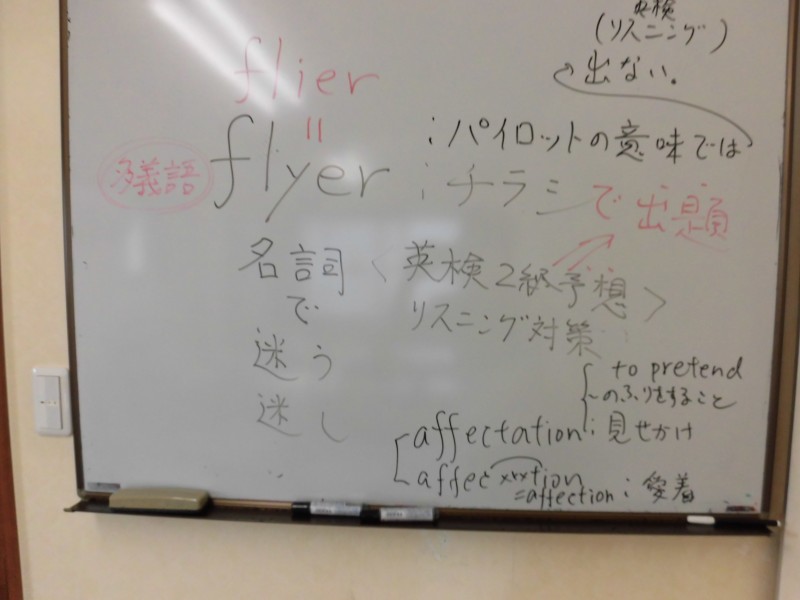 英検
(リスニング)
出ない。
flier
=
flyer
多義語
:パイロットの意味では
:チラシで出題
名詞
で
迷う
迷し
<英検2級予想>
リスニング対策
to pretend
~のふりをすること
affectation:見せかけ
affecxxxtion
=affection:愛着